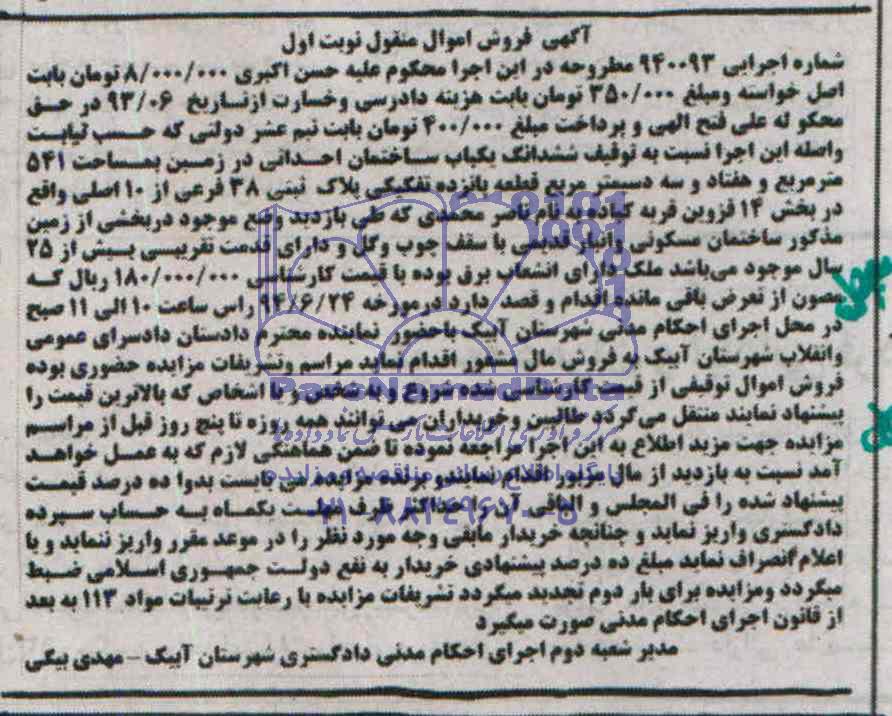 آگهی فروش اموال منقول نوبت اول
شماره اجرایی ۹۴۰۰۹۳ مطروحه در این اجرا محکوم علیه حسن اکبری ۸/۰۰۰/۰۰۰ تومان بابت
اصل خواسته ومبلغ ۳۵۰/۰۰۰ تومان بابت هزینه دادرسی وخسارت ازتاریخ ۹۳/۰۶ در حق
محکو له علی فتح الهی و پرداخت مبلغ ۴۰۰/۰۰۰ تومان بابت نیم عشر دولتی که حسب نیابت
واصله این اجرا نسبت به توقیف ششدانگ یکباب ساختمان احداثی در زمین بمساحت ۵۴۱
مترمربع و هفتاد و سه دسیمتر مربع قطعه پانزده تفکیکی پلاک ثبتی ۳۸ فرعی از ۱۰ اصلی واقع
در بخش ۱۴ قزوین قریه کیاده به نام ناصر محمدی که طی بازدید وضع موجود دربخشی از زمین
مذکور ساختمان مسکونی وانبار قدیمی با سقف چوب وگل و دارای قدمت تقریبی بیش از ۲۵
سال موجود می‌باشد ملک دارای انشعاب برق بوده با قیمت کارشناسی ۱۸۰/۰۰۰/۰۰۰ ریال که
مصون از تعرض باقی مانده اقدام و قصد دارد درمورخه ۹۴/۶/۲۴ راس ساعت ۱۰ الی ۱۱ صبح
در محل اجرای احکام مدنی شهرستان آبیک باحضور نماینده محترم دادستان دادسرای عمومی
وانقلاب شهرستان آبیک به فروش مال منظور اقدام نماید مراسم وتشریفات مزایده حضوری بوده
فروش اموال توقیفی از قیمت کارشناسی شده شروع و با شخص و یا اشخاص که بالاترین قیمت را
پیشنهاد نمایند منتقل می‌گردد طالبین وخریداران می توانند همه روزه تا پنج روز قبل از مراسم
مزایده جهت مزید اطلاع به این اجرا مراجعه نموده تا ضمن هماهنگی لازم که به عمل خواهد
آمد نسبت به بازدید از مال مزبور اقدام نمایندو برنده مزایده می بایست بدوا ده درصد قیمت
پیشنهاد شده را فی المجلس و الباقی آن را حداکثر ظرف مهلت یکماه به حساب سپرده
دادگستری واریز نماید و چنانچه خریدار مابقی وجه مورد نظر را در موعد مقرر واریز ننماید و یا
اعلام انصراف نماید مبلغ ده درصد پیشنهادی خریدار به نفع دولت جمهوری اسلامی ضبط
میگردد ومزایده برای بار دوم تجدید میگردد تشریفات مزایده با رعایت ترتیبات مواد ۱۱۳ به بعد
از قانون اجرای احکام مدنی صورت میگیرد
مدیر شعبه دوم اجرای احکام مدنی دادگستری شهرستان آبیک – مهدی بیگی